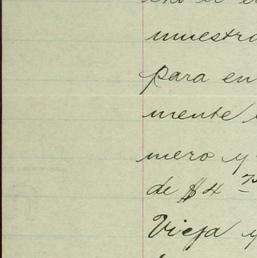 muestra
para en
mente
mero y
de $4
Vieja y